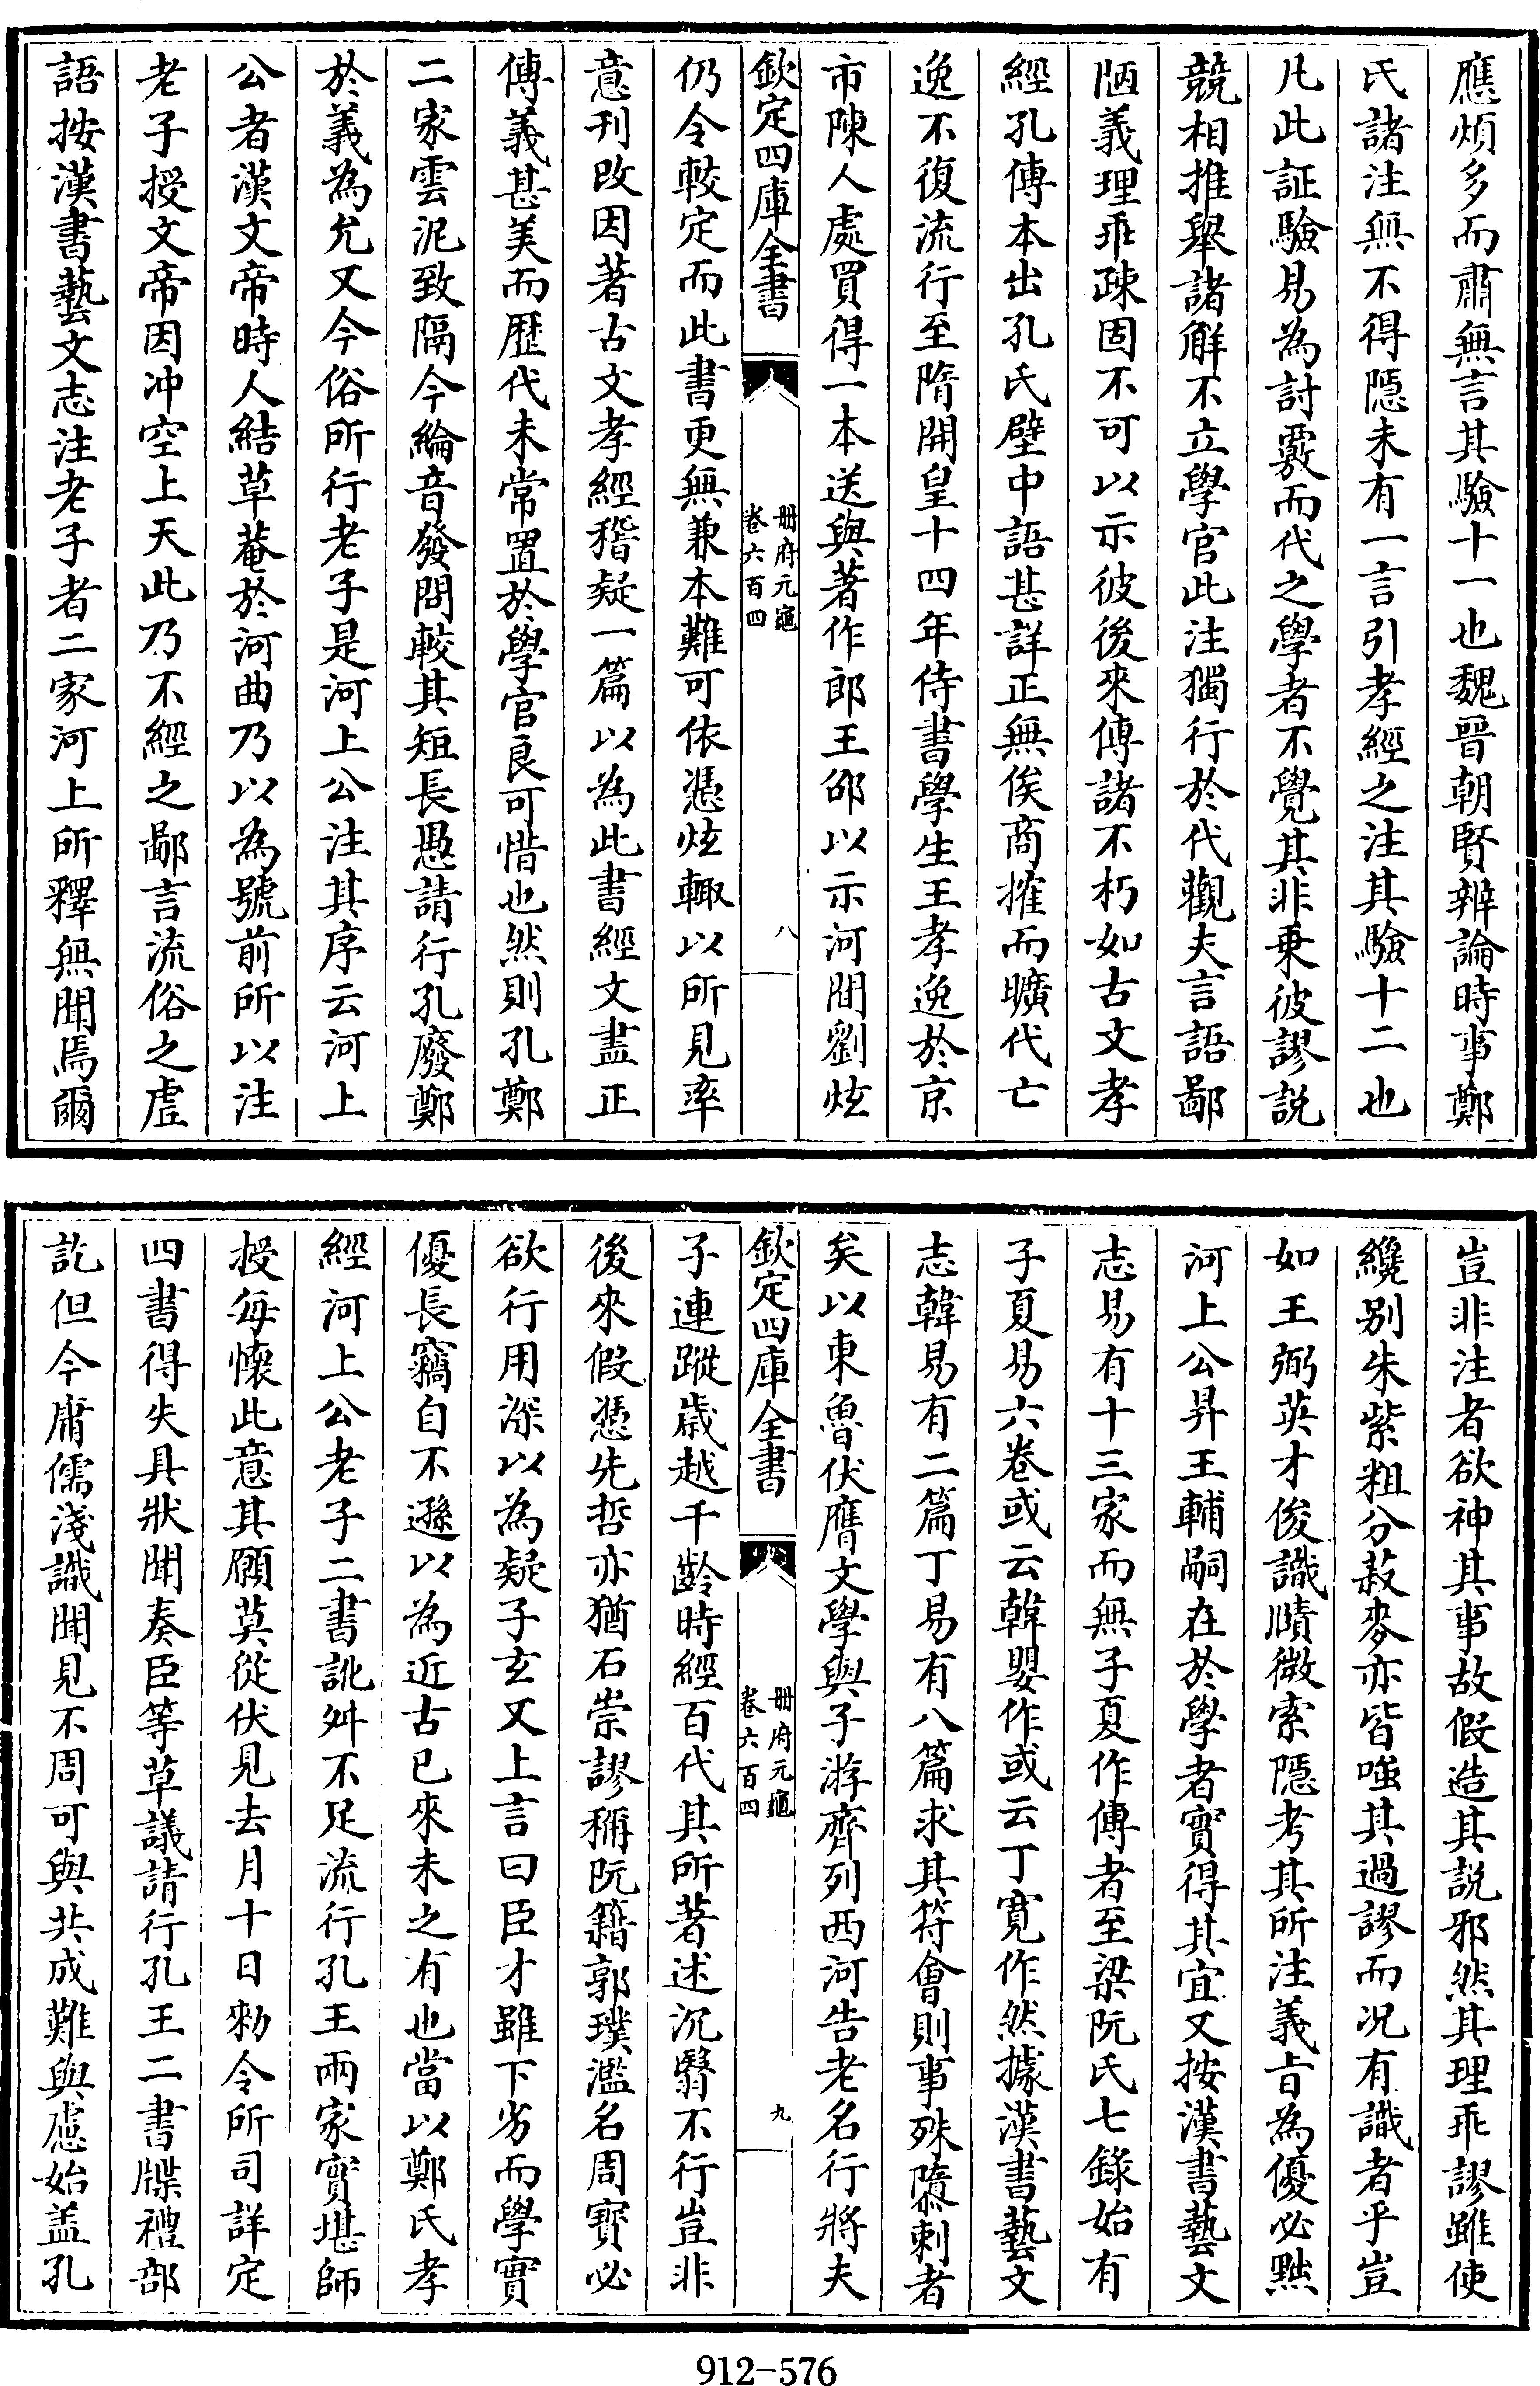 應煩多而肅無言其驗十一也魏晉朝賢辨論時事鄭
氏諸注無不得隱未有一言引孝經之注其驗十二也
凡此証驗易為討覈而代之學者不覺其非乗彼謬説
競相推舉諸解不立學官此注獨行於代觀夫言語鄙
陋義理乖疎固不可以示彼後來傳諸不朽如古文孝
經孔傳本出孔氏壁中語甚詳正無俟商搉而曠代亡
逸不復流行至隋開皇十四年侍書學生王孝逸於京
市陳人處買得一本送與著作郎王邵以示河間劉炫
欽定四庫全書
冊府元龜
卷六百四
八
仍令較定而此書更無兼本難可依憑炫輙以所見率
意刊改因著古文孝經稽疑一篇以為此書經文盡正
傳義甚美而歷代未常置於學官良可惜也然則孔鄭
二家雲泥致隔今綸音發問較其短長愚請行孔廢鄭
於義為允又今俗所行老子是河上公注其序云河上
公者漢文帝時人結草菴於河曲乃以為號前所以注
老子授文帝因冲空上天此乃不經之鄙言流俗之虛
語按漢書藝文志注老子者二家河上所釋無聞焉爾
豈非注者欲神其事故假造其説邪然其理乖謬雖使
纔别朱紫粗分菽麥亦皆嗤其過謬而况有識者乎豈
如王弼英才俊識賾微索隱考其所注義㫖為優必黜
河上公昇王輔嗣在於學者實得其宜又按漢書藝文
志易有十三家而無子夏作傳者至梁阮氏七錄始有
子夏易六卷或云韓嬰作或云丁寛作然據漢書藝文
志韓易有二篇丁易有八篇求其符會則事殊隳剌者
矣以東魯伏膺文學與子游齊列西河告老名行將夫
欽定四庫全書
冊府元龜
卷六百四
九
子連蹤歲越千齡時經百代其所著述沉翳不行豈非
後來假憑先哲亦猶石崇謬稱阮籍郭璞濫名周寳必
欲行用深以為疑子玄又上言曰臣才雖下劣而學實
優長竊自不遜以為近古已來未之有也當以鄭氏孝
經河上公老子二書訛舛不足流行孔王兩家實堪師
授每懷此意其願莫從伏見去月十日勑令所司詳定
四書得失具狀聞奏臣等草議請行孔王二書牒禮部
訖但今庸儒淺識聞見不周可與共成難與慮始盖孔
912-576